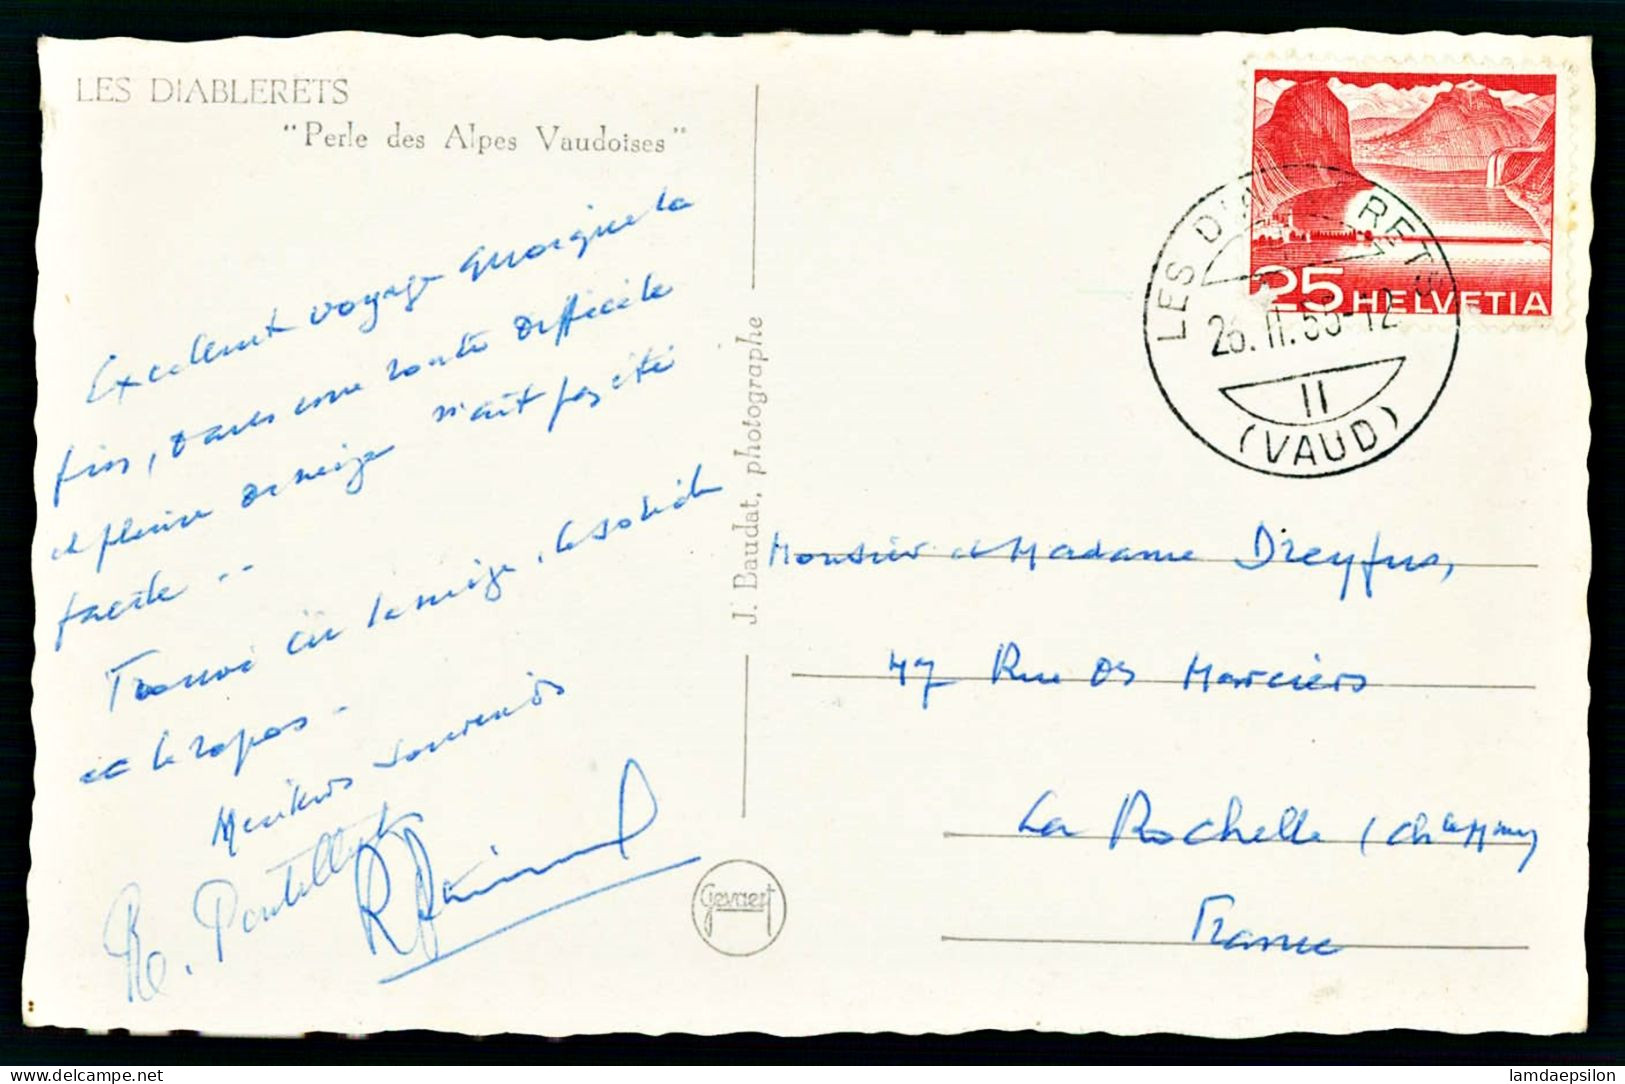 LES DIABLERETS
"Perle des Alpes Vaudoises"
Excellent voyage quoique la
fin, dans une route difficile
et pleine de neige n'ait pas été
facile --
Trouvé ici la neige, le soleil
et le repos -
Meilleurs souvenirs
J. Baudat, photographe
Gevaert
25 HELVETIA
LES DIABLERETS
II
(VAUD)
Monsieur et Madame Dreyfus,
47 Rue des Merciers
La Rochelle (Chte Mme)
France